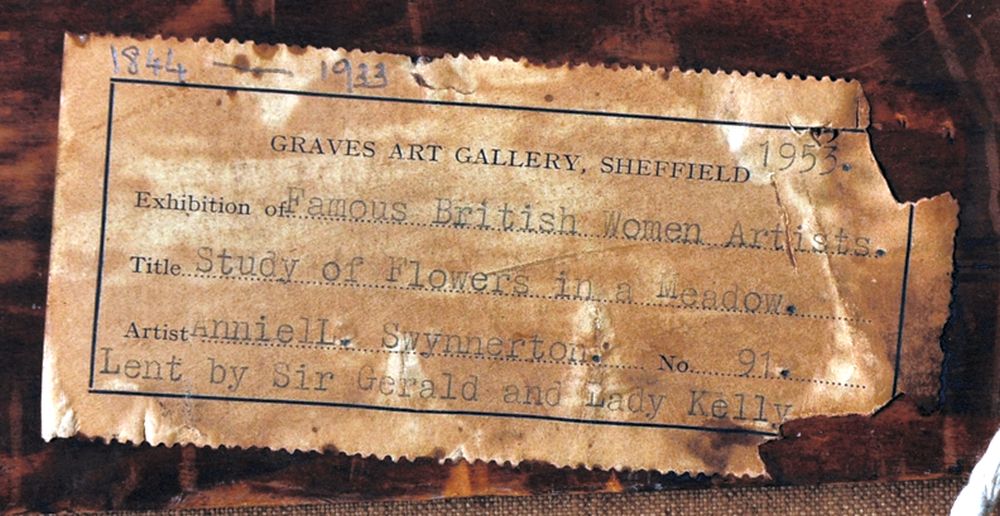 1844 — 1933
GRAVES ART GALLERY, SHEFFIELD 1953.
Exhibition of Famous British Women Artists.
Title Study of Flowers in a Meadow.
Artist AnnielL. Swynnerton. No. 91.
Lent by Sir Gerald and Lady Kelly